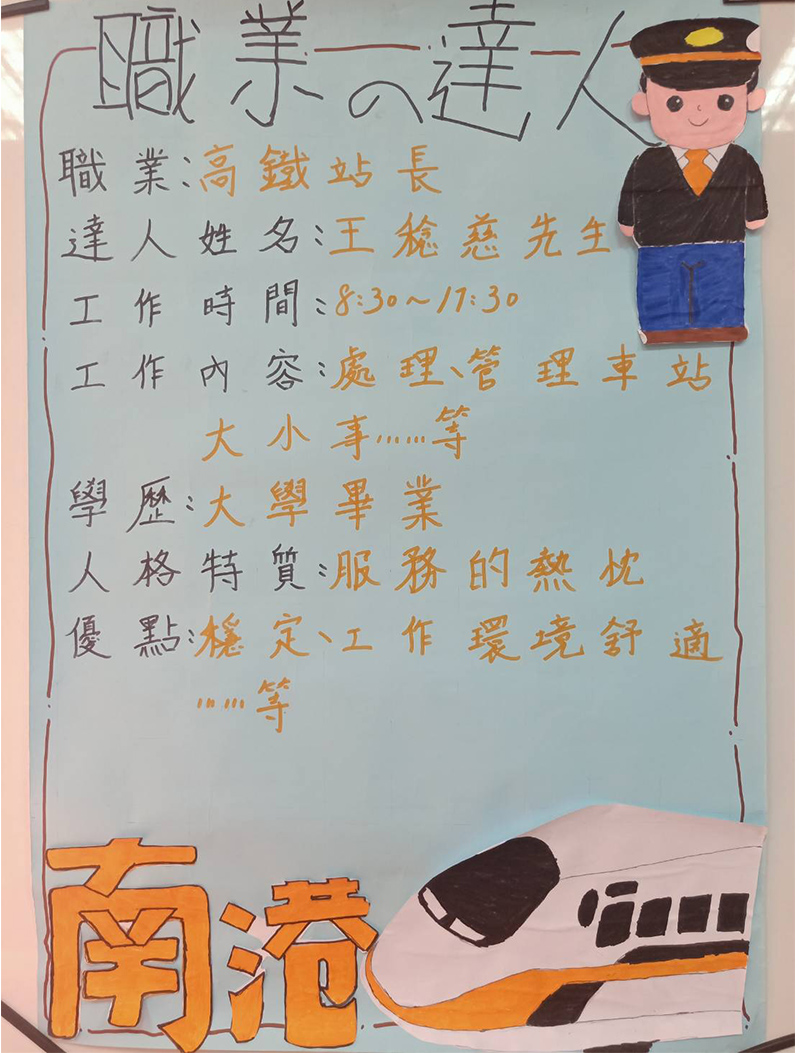 職業の達人
職業:高鐵站長
達人姓名:王稔慈先生
工作時間:8:30~17:30
工作內容:處理、管理車站
大小事……等
學歷:大學畢業
人格特質:服務的熱忱
優點:穩定、工作環境舒適
……等
南港